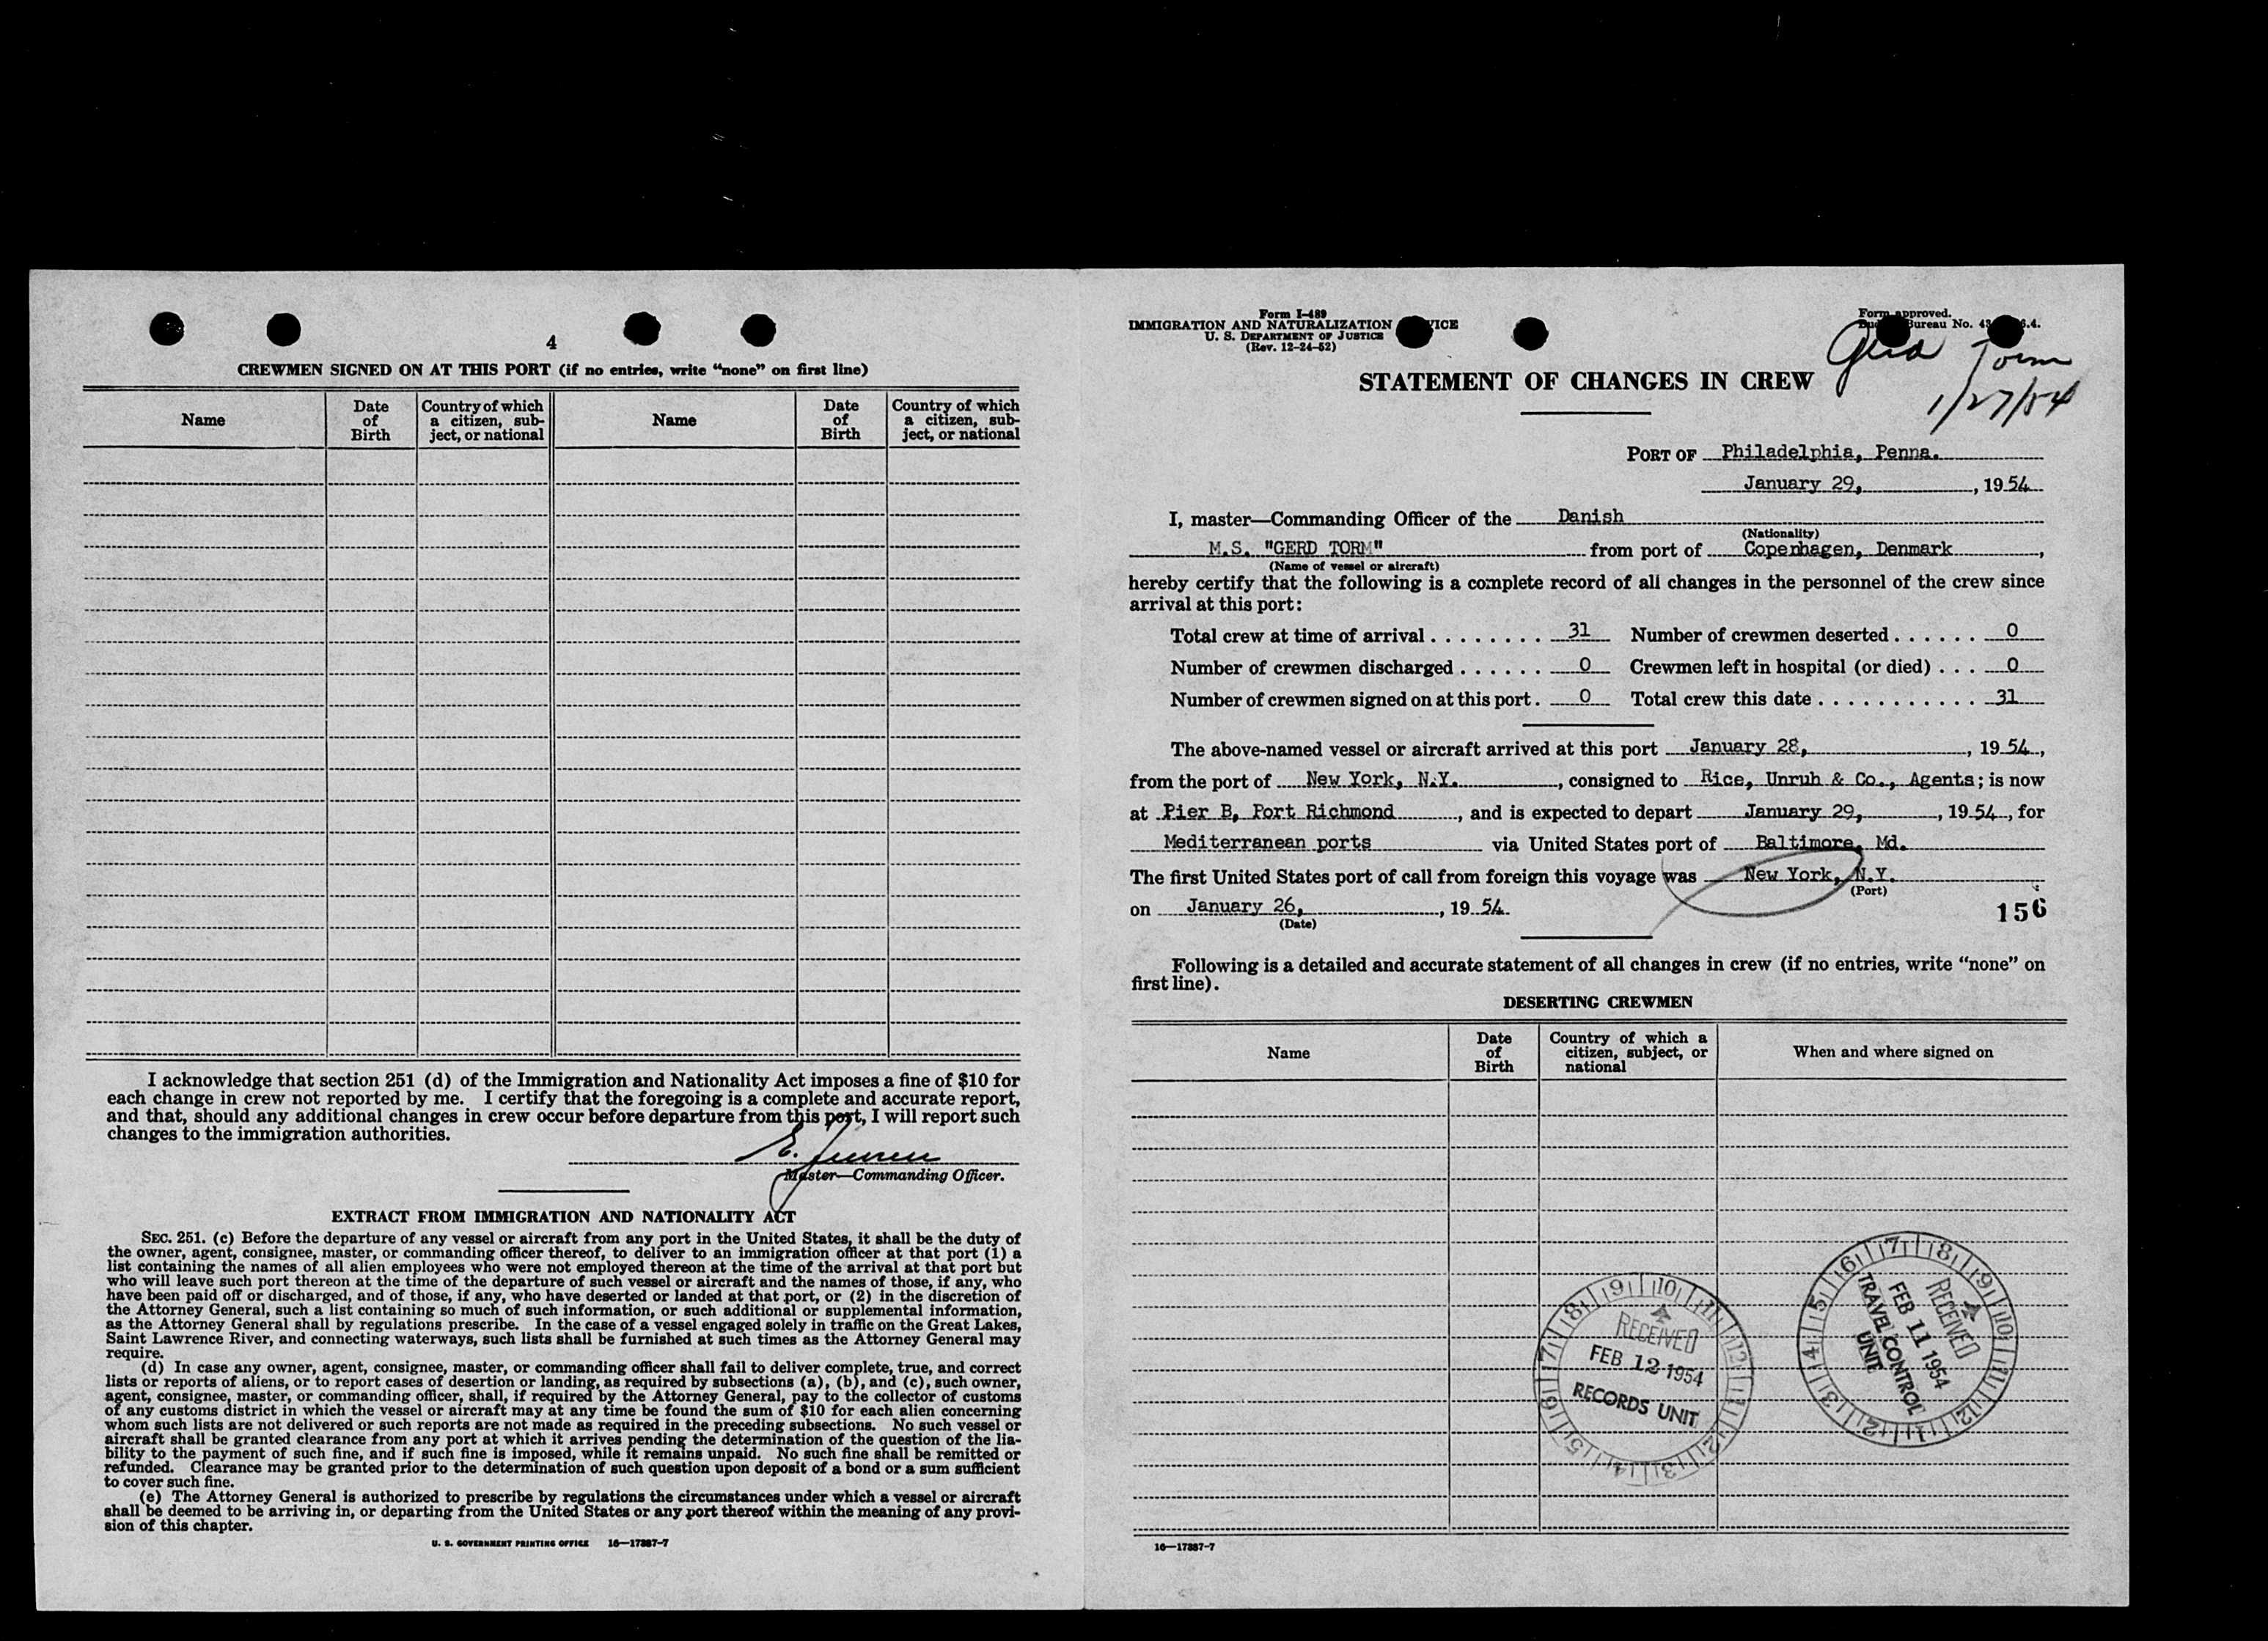 4
CREWMEN SIGNED ON AT THIS PORT (if no entries, write “none” on first line)
Name
Date of Birth
Country of which a citizen, sub-ject, or national
Name
Date of Birth
Country of which a citizen, sub-ject, or national
I acknowledge that section 251 (d) of the Immigration and Nationality Act imposes a fine of $10 for
each change in crew not reported by me. I certify that the foregoing is a complete and accurate report,
and that, should any additional changes in crew occur before departure from this port, I will report such
changes to the immigration authorities.
Master—Commanding Officer.
EXTRACT FROM IMMIGRATION AND NATIONALITY ACT
SEC. 251. (c) Before the departure of any vessel or aircraft from any port in the United States, it shall be the duty of
the owner, agent, consignee, master, or commanding officer thereof, to deliver to an immigration officer at that port (1) a
list containing the names of all alien employees who were not employed thereon at the time of the arrival at that port but
who will leave such port thereon at the time of the departure of such vessel or aircraft and the names of those, if any, who
have been paid off or discharged, and of those, if any, who have deserted or landed at that port, or (2) in the discretion of
the Attorney General, such a list containing so much of such information, or such additional or supplemental information,
as the Attorney General shall by regulations prescribe. In the case of a vessel engaged solely in traffic on the Great Lakes,
Saint Lawrence River, and connecting waterways, such lists shall be furnished at such times as the Attorney General may
require.
(d) In case any owner, agent, consignee, master, or commanding officer shall fail to deliver complete, true, and correct
lists or reports of aliens, or to report cases of desertion or landing, as required by subsections (a), (b), and (c), such owner,
agent, consignee, master, or commanding officer, shall, if required by the Attorney General, pay to the collector of customs
of any customs district in which the vessel or aircraft may at any time be found the sum of $10 for each alien concerning
whom such lists are not delivered or such reports are not made as required in the preceding subsections. No such vessel or
aircraft shall be granted clearance from any port at which it arrives pending the determination of the question of the lia-
bility to the payment of such fine, and if such fine is imposed, while it remains unpaid. No such fine shall be remitted or
refunded. Clearance may be granted prior to the determination of such question upon deposit of a bond or a sum sufficient
to cover such fine.
(e) The Attorney General is authorized to prescribe by regulations the circumstances under which a vessel or aircraft
shall be deemed to be arriving in, or departing from the United States or any port thereof within the meaning of any provi-
sion of this chapter.
U. S. GOVERNMENT PRINTING OFFICE 16—17887-7
Form I-489
IMMIGRATION AND NATURALIZATION
U. S. DEPARTMENT OF JUSTICE
(Rev. 12-24-52)
Form approved.
Bureau No.
Gerd Torm
1/27/54
STATEMENT OF CHANGES IN CREW
PORT OF Philadelphia, Penna.
January 29, , 19 54
I, master—Commanding Officer of the Danish
(Nationality)
M.S. "GERD TORM" from port of Copenhagen, Denmark ,
(Name of vessel or aircraft)
hereby certify that the following is a complete record of all changes in the personnel of the crew since
arrival at this port:
Total crew at time of arrival . . . . . . . . 31 Number of crewmen deserted . . . . . . 0
Number of crewmen discharged . . . . . . 0 Crewmen left in hospital (or died) . . . 0
Number of crewmen signed on at this port . 0 Total crew this date . . . . . . . . . . . 31
The above-named vessel or aircraft arrived at this port January 28, , 19 54 ,
from the port of New York, N.Y. , consigned to Rice, Unruh & Co., Agents; is now
at Pier B, Port Richmond , and is expected to depart January 29, , 19 54 , for
Mediterranean ports via United States port of Baltimore, Md.
The first United States port of call from foreign this voyage was New York, N.Y.
(Port)
on January 26, , 19 54.
(Date)
156
Following is a detailed and accurate statement of all changes in crew (if no entries, write “none” on
first line).
DESERTING CREWMEN
Name
Date of Birth
Country of which a citizen, subject, or national
When and where signed on
RECEIVED
FEB 12 1954
RECORDS UNIT
RECEIVED
FEB 11 1954
TRAVEL CONTROL
UNIT
16—17887-7